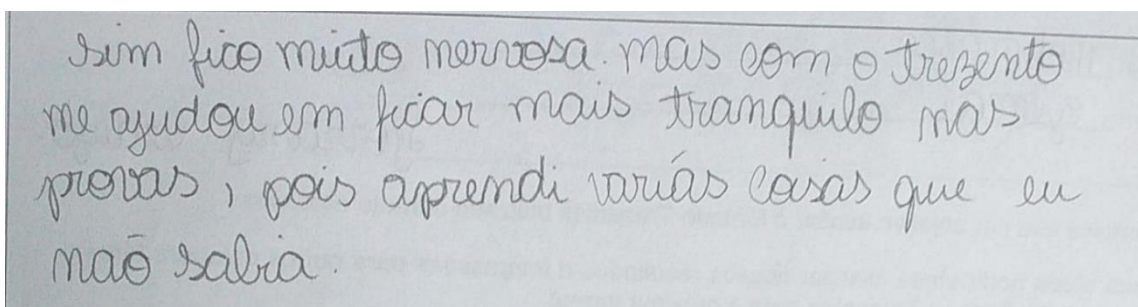 sim fico muito nervosa. mas com o trezento
me ajudou em ficar mais tranquilo nas
provas, pois aprendi variás coisas que eu
naõ sabia.